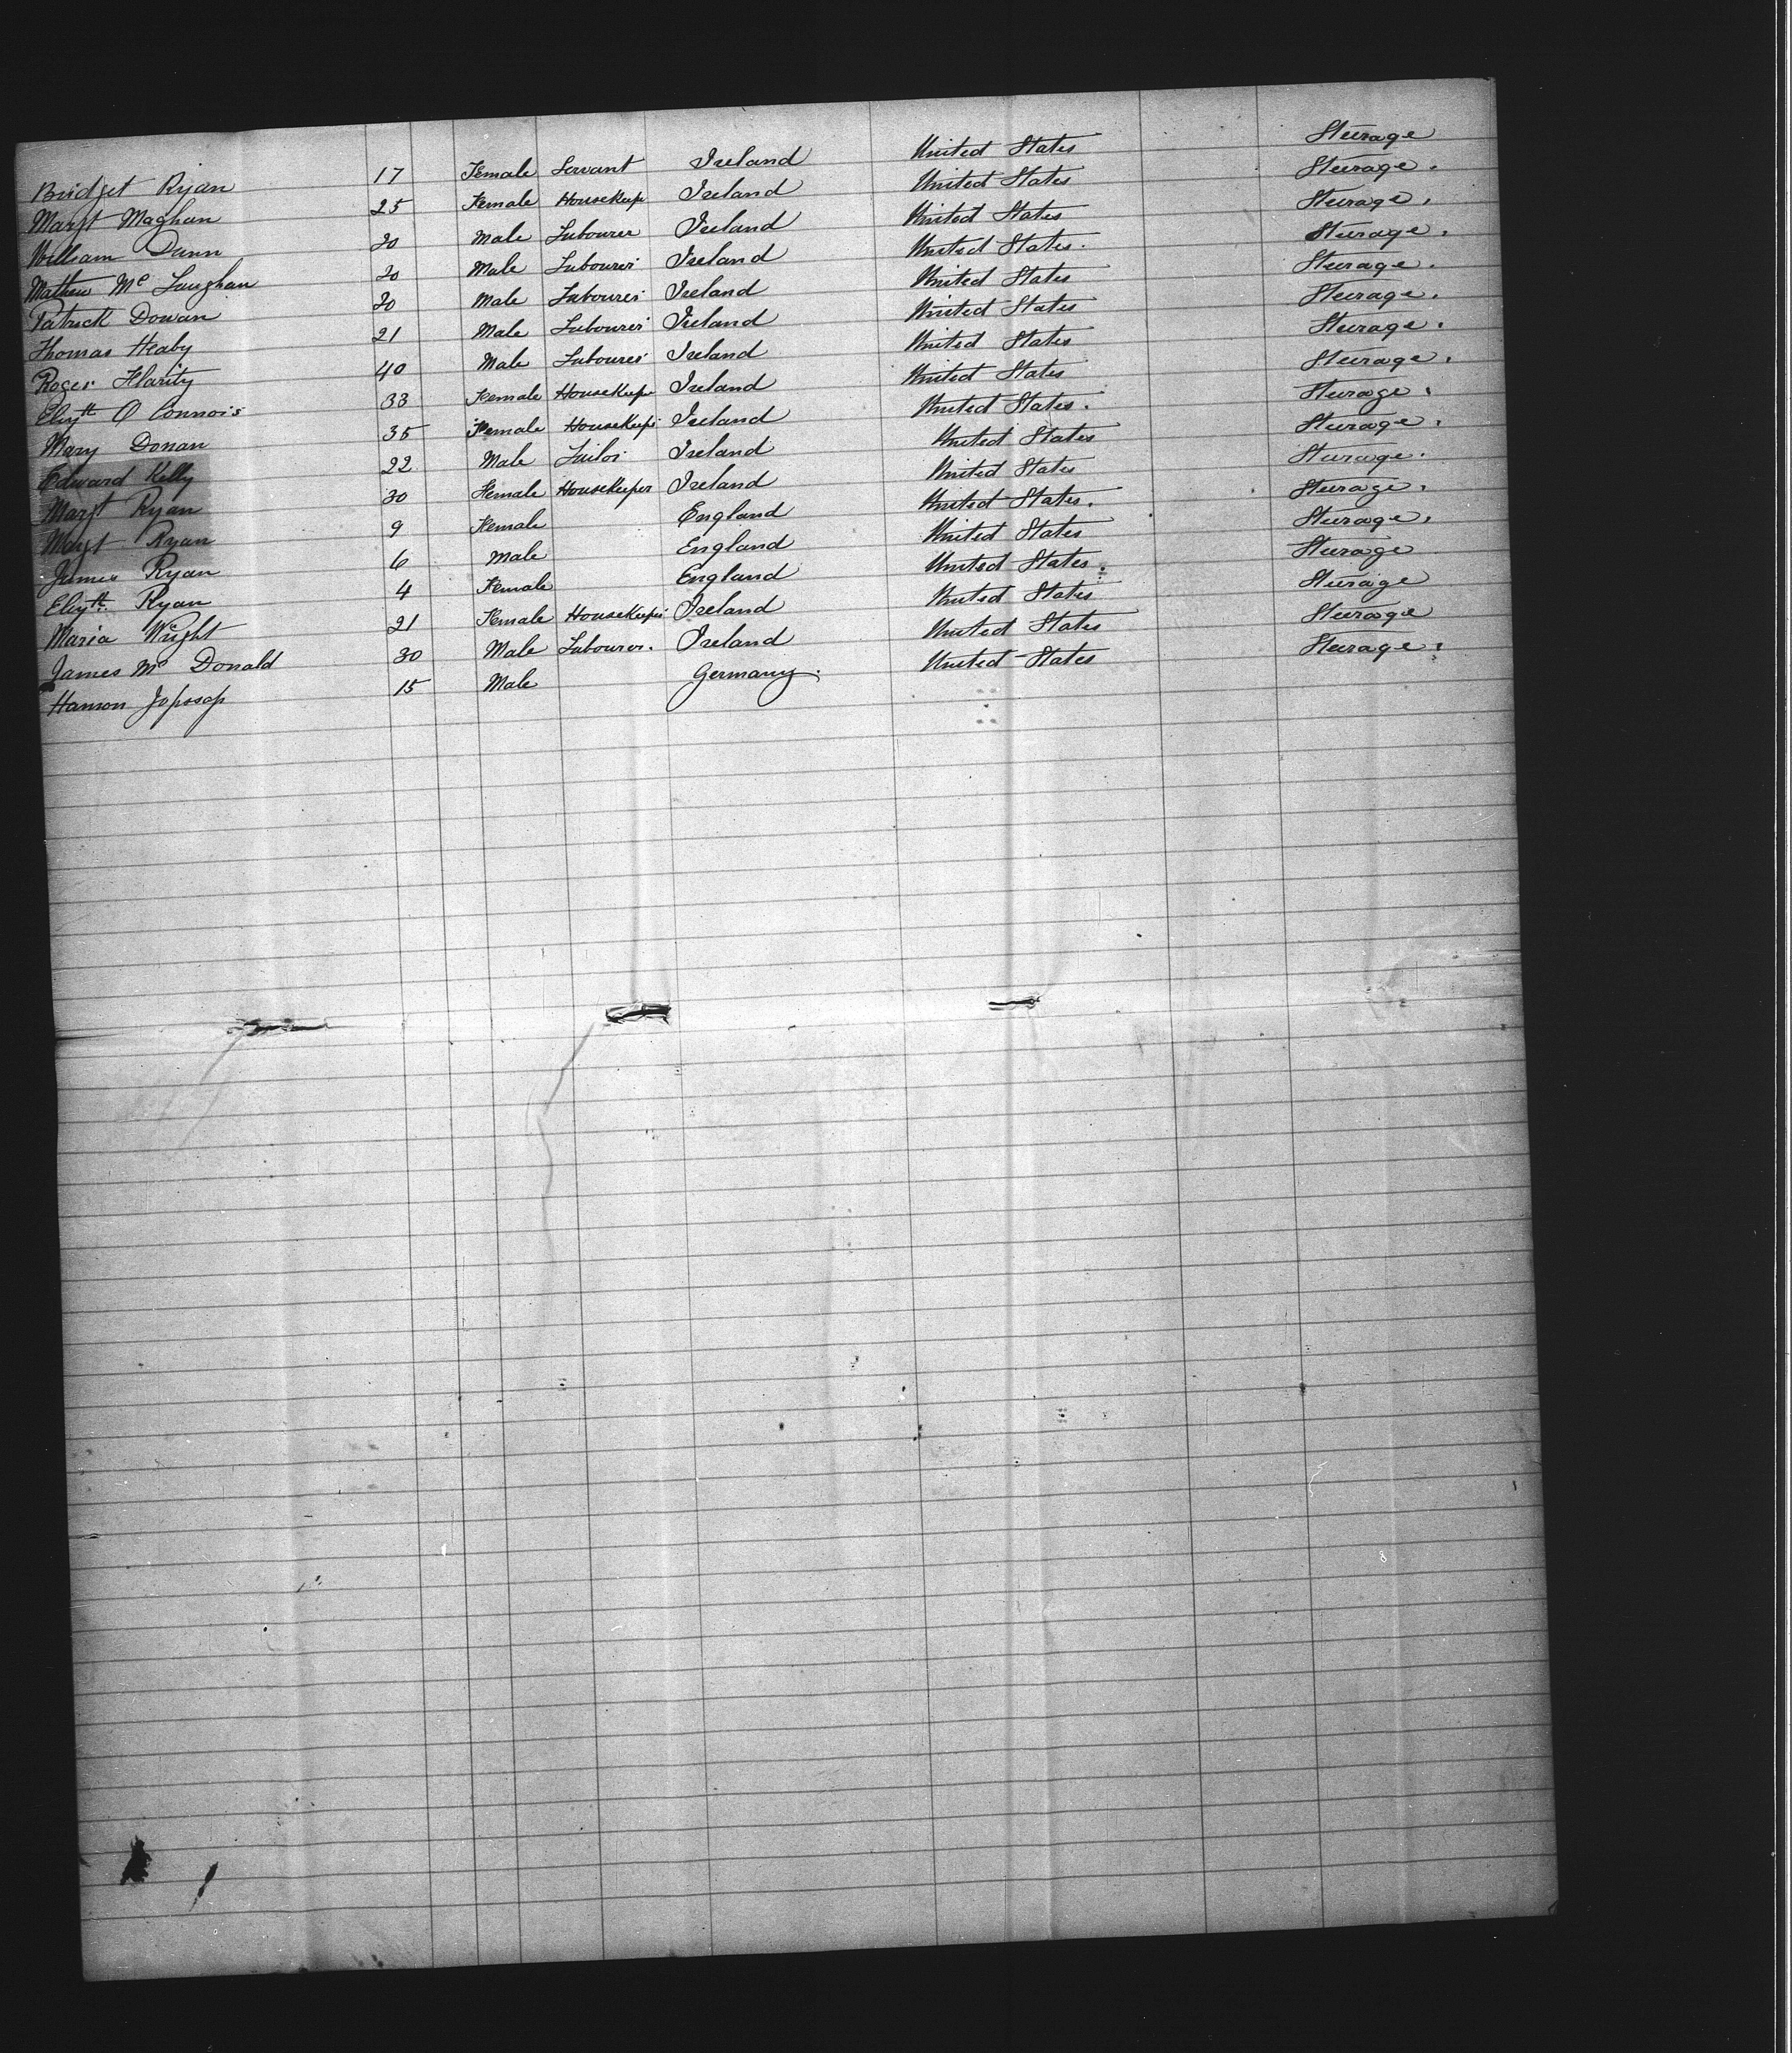 Bridget Ryan 17 Female Servant Ireland United States Steerage
Margt Maghan 25 Female HouseKeepr Ireland United States Steerage.
William Dunn 20 Male Labourer Ireland United States Steerage.
Mathew Mc Laughan 20 Male Labourer Ireland United States. Steerage.
Patrick Dowan 20 Male Labourer Ireland United States Steerage.
Thomas Heaby 21 Male Labourer Ireland United States Steerage.
Roger Flarity 40 Male Labourer Ireland United States Steerage.
Elizth O Connors 33 Female HouseKeepr Ireland United States Steerage.
Mary Donan 35 Female HouseKeepr Ireland United States. Steerage.
Edward Kelly 22 Male Tailor Ireland United States Steerage.
Margt Ryan 30 Female HouseKeeper Ireland United States Steerage.
Margt Ryan 9 Female England United States. Steerage.
James Ryan 6 Male England United States Steerage.
Elizth Ryan 4 Female England United States. Steerage
Maria Wright 21 Female HouseKeeper Ireland United States Steerage
James Mc Donald 30 Male Labourer. Ireland United States Steerage
15 Male Germany. United States Steerage.